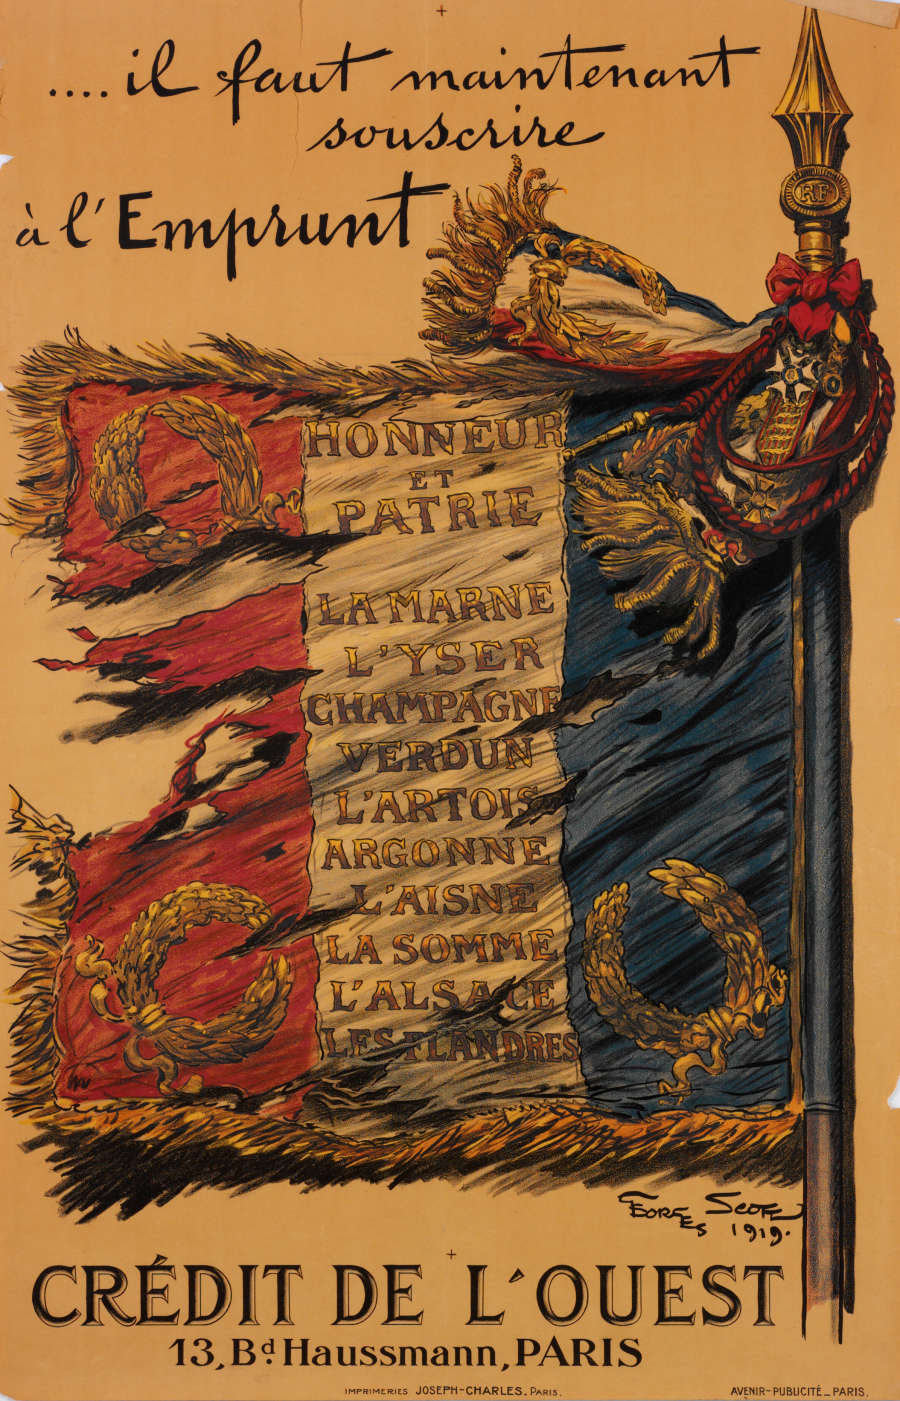 ....il faut maintenant
souscrire
à l'Emprunt
RF
HONNEUR
ET
PATRIE
LA MARNE
L'YSER
CHAMPAGNE
VERDUN
L'ARTOIS
ARGONNE
L'AISNE
LA SOMME
L'ALSACE
LES FLANDRES
GEORGES SCOTT
1919.
CRÉDIT DE L'OUEST
13, Bd Haussmann, PARIS
IMPRIMERIES JOSEPH-CHARLES. PARIS.
AVENIR-PUBLICITÉ_PARIS.